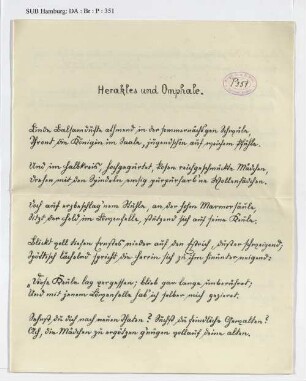 SUB Hamburg: DA : Br : P : 351
P 351
Herakles und Omphale.
Linde Balsamdüfte athmend in der sommernächt'gen Schwüle,
Thront die Königin im Saale, hingegossen auf dem Pfühle.
Und im Halbkreis, hochgegürtet, losen reichgeschmückte Mädchen,
Drehen mit den Spindeln emsig purpurfarb'ne Wollenfädchen.
Doch auf erzbeschlag'nem Stuhle, an der hohen Marmorsäule,
Sitzt der Held im Löwenfelle, stützend sich auf seine Keule.
Blickt gell dessen ernstes nieder auf den Estrich, düster schweigend;
Spöttisch lächelnd spricht die Herrin sich zu ihm hinunter neigend:
„Diese Keule lag vergessen; blieb gar lange unberührt;
Und mit jenem Löwenfelle hab' ich selber mich geziert.
Sehnst du dich nach neuen Thaten? Suchst du feindliche Gewalten?
Ach, die Mädchen zu ergötzen genügen vollauf deine alten.